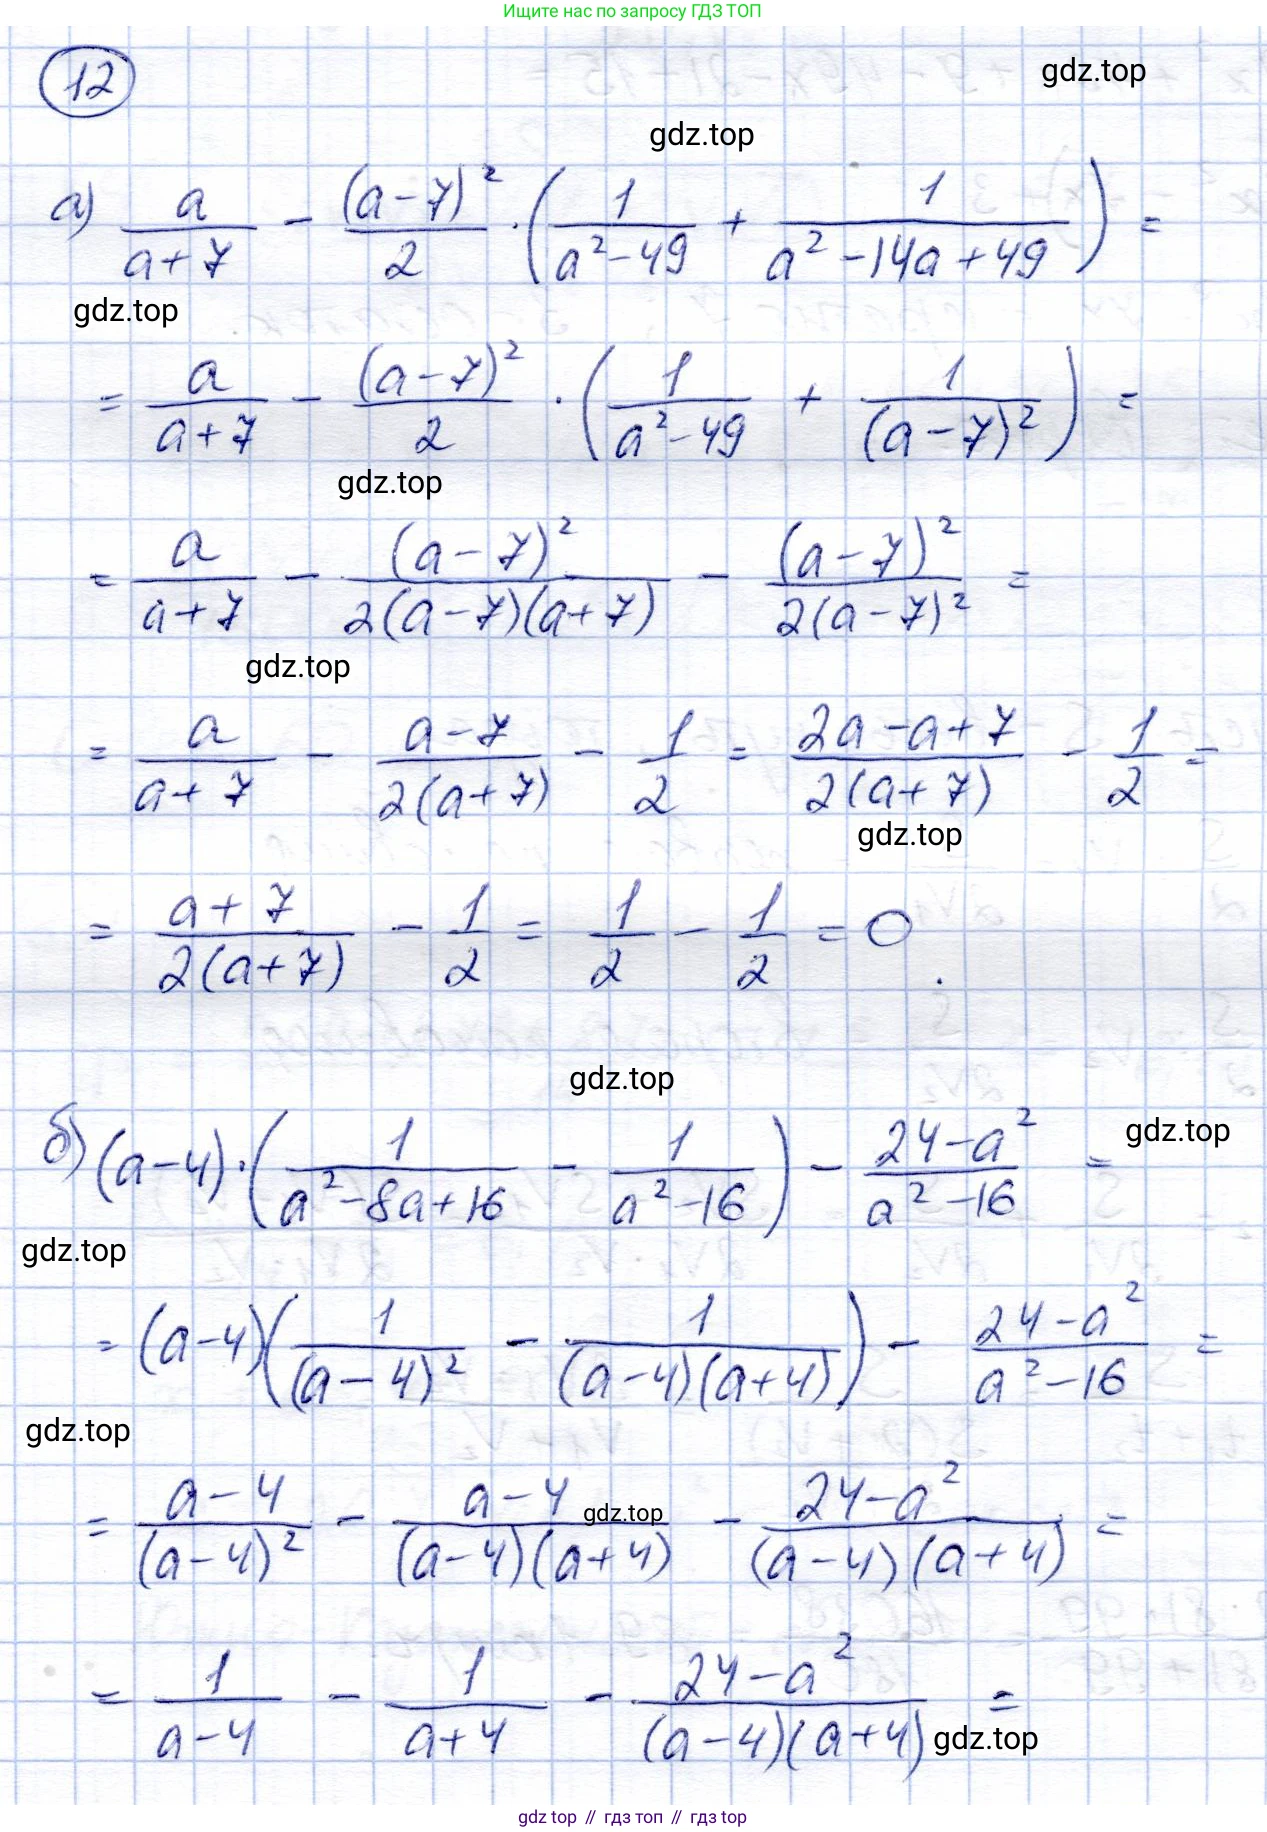 Ищите нас по запросу ГДЗ ТОП
12
gdz.top
gdz.top
а) a/(a+7) - (a-7)²/2 · (1/(a²-49) + 1/(a²-14a+49)) =
gdz.top
= a/(a+7) - (a-7)²/2 · (1/(a²-49) + 1/(a-7)²) =
gdz.top
= a/(a+7) - (a-7)²/(2(a-7)(a+7)) - (a-7)²/(2(a-7)²) =
gdz.top
= a/(a+7) - (a-7)/(2(a+7)) - 1/2 = (2a-a+7)/(2(a+7)) - 1/2 =
gdz.top
= (a+7)/(2(a+7)) - 1/2 = 1/2 - 1/2 = 0.
gdz.top
gdz.top
б) (a-4)·(1/(a²-8a+16) - 1/(a²-16)) - (24-a²)/(a²-16) =
gdz.top
= (a-4)(1/(a-4)² - 1/((a-4)(a+4))) - (24-a²)/(a²-16) =
gdz.top
= (a-4)/(a-4)² - (a-4)/((a-4)(a+4)) - (24-a²)/((a-4)(a+4)) =
gdz.top
= 1/(a-4) - 1/(a+4) - (24-a²)/((a-4)(a+4)) =
gdz.top
gdz top // гдз топ // гдз top